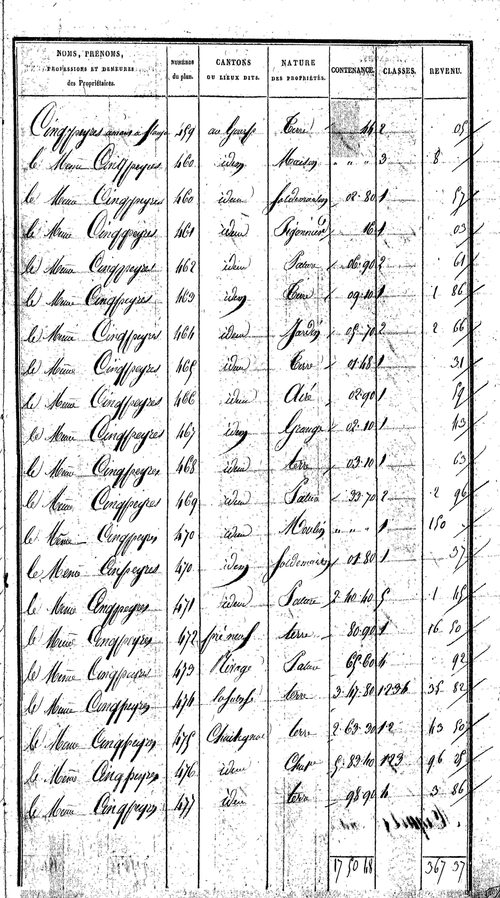 NOMS, PRÉNOMS, PROFESSIONS ET DEMEURES des Propriétaires. NUMÉROS du plan. CANTONS OU LIEUX DITS. NATURE DES PROPRIÉTÉS. CONTENANCE. CLASSES. REVENU.
Cinqpeyres 459 au Terre 44 2 05
le Même Cinqpeyres 460 idem Maison " " " 3 8
le Même Cinqpeyres 460 idem Sol de maison 02.80 1 57
le Même Cinqpeyres 461 idem Pigeonnier 16 1 03
le Même Cinqpeyres 462 idem Pature 06.90 2 61
le Même Cinqpeyres 463 idem Terre 09.10 1 1 86
le Même Cinqpeyres 464 idem Jardin 05.70 2 2 66
le Même Cinqpeyres 465 idem Terre 01.48 1 31
le Même Cinqpeyres 466 idem Airé 02.90 1 59
le Même Cinqpeyres 467 idem Grange 02.10 1 43
le Même Cinqpeyres 468 idem terre 03.10 1 63
le Même Cinqpeyres 469 idem Pature 33.70 2 2 96
le Même Cinqpeyres 470 idem Moulin " " " 1 150
le Même Cinqpeyres 470 idem Sol de maison 01.80 1 37
le Même Cinqpeyres 471 idem Pature 2.40.40 5 1 45
le Même Cinqpeyres 472 pré neuf terre 80.90 1 16 50
le Même Cinqpeyres 473 Pature 65.60 4 92
le Même Cinqpeyres 474 terre 3.47.80 1234 35 82
le Même Cinqpeyres 475 terre 2.63.30 12 43 50
le Même Cinqpeyres 476 idem 5.83.40 123 96 25
le Même Cinqpeyres 477 idem terre 98.90 4 3 86
17 50 48 367 37